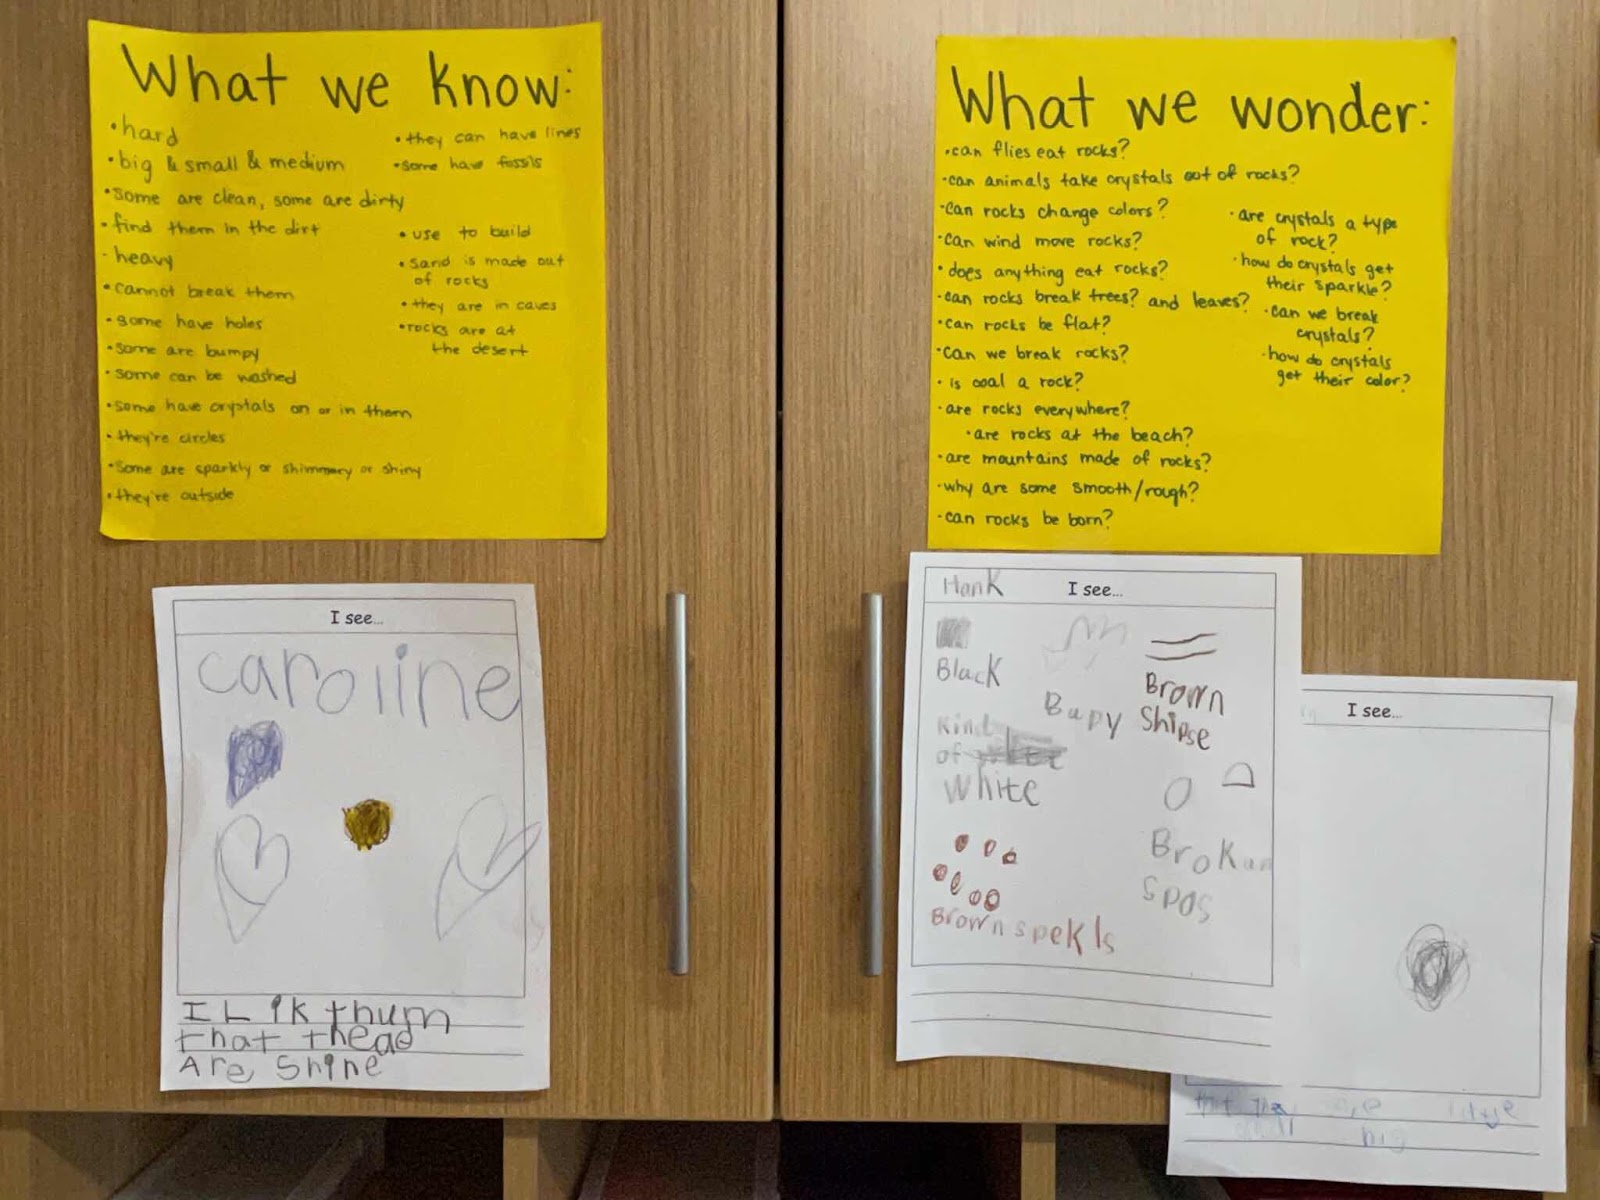 What we know:
•hard
•big & small & medium
•some are clean, some are dirty
•find them in the dirt
•heavy
•cannot break them
•some have holes
•some are bumpy
•some can be washed
•some have crystals on or in them
•they're circles
•some are sparkly or shimmery or shiny
•they're outside
•they can have lines
•some have fossils
•use to build
•sand is made out
of rocks
•they are in caves
•rocks are at
the desert
What we wonder:
•can flies eat rocks?
•can animals take crystals out of rocks?
•can rocks change colors?
•can wind move rocks?
•does anything eat rocks?
•can rocks break trees? and leaves?
•can rocks be flat?
•can we break rocks?
•is coal a rock?
•are rocks everywhere?
•are rocks at the beach?
•are mountains made of rocks?
•why are some smooth/rough?
•can rocks be born?
•are crystals a type
of rock?
•how do crystals get
their sparkle?
•can we break
crystals?
•how do crystals
get their color?
I see...
caroline
I Lik thum
that thea
Are Shine
Hank I see...
Black
Bupy
Brown
Shipse
Kind
of
White
Brokun
spos
Brown spekls
I see...
big